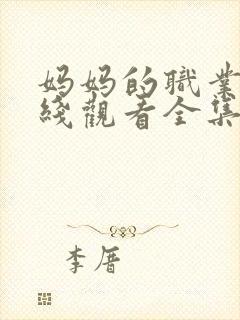 妈妈的職業
綫觀看全集
李厝